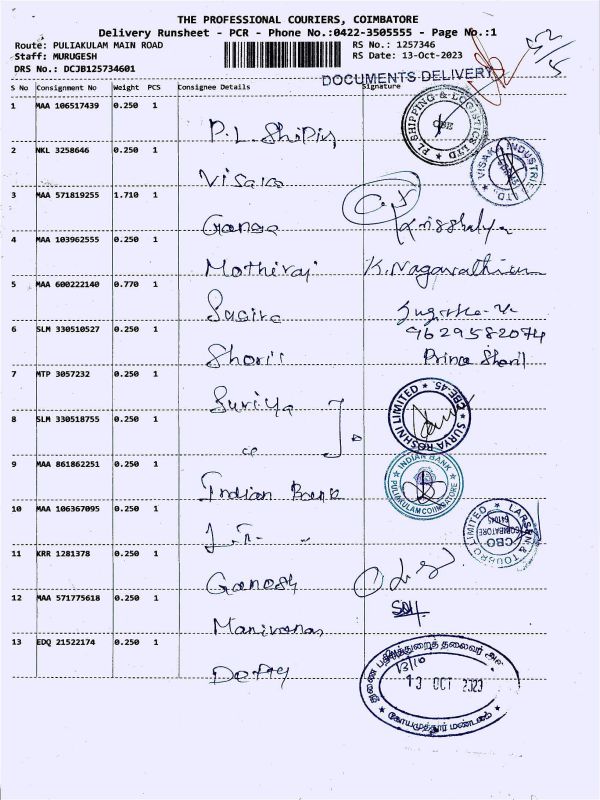 THE PROFESSIONAL COURIERS, COIMBATORE
Delivery Runsheet - PCR - Phone No.:0422-3505555 - Page No.:1
Route: PULIAKULAM MAIN ROAD
Staff: MURUGESH
DRS No.: DCJB125734601
RS No.: 1257346
RS Date: 13-Oct-2023
DOCUMENTS DELIVERY
S No Consignment No Weight PCS Consignee Details Signature
1 MAA 106517439 0.250 1
P.L. Shipig
2 NKL 3258646 0.250 1
Visaka
VISAKA INDUSTRIES LTD.
3 MAA 571819255 1.710 1
Ganga
4 MAA 103962555 0.250 1
Mothiraj K. Nagavathiam
5 MAA 600222140 0.770 1
9629582074
6 SLM 330510527 0.250 1
Shoril Prince Shoril
7 MTP 3057232 0.250 1
Suriya
SURYA ROSHNI LIMITED CBE-45
8 SLM 330518755 0.250 1
9 MAA 861862251 0.250 1
Indian Bank
INDIAN BANK PULIAKULAM COIMBATORE
10 MAA 106367095 0.250 1
LARSEN & TOUBRO LIMITED CBO COIMBATORE 641045
11 KRR 1281378 0.250 1
Ganesh
12 MAA 571775618 0.250 1
Manivanan
13 EDQ 21522174 0.250 1
Depty
13/10
13 OCT 2023
கோயமுத்தூர் மண்டலம்